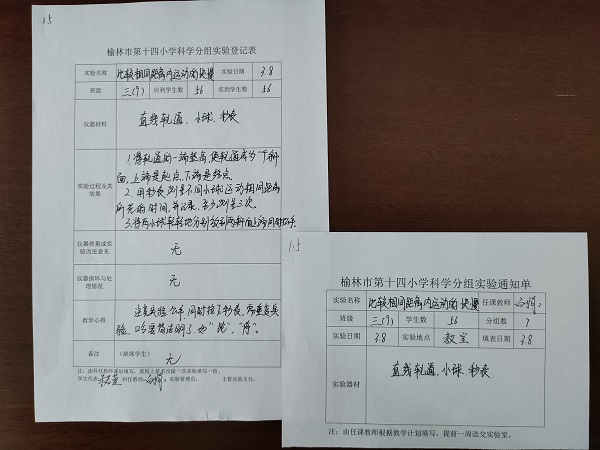 15
榆林市第十四小学科学分组实验登记表
实验名称 比较相同距离内运动的快慢 实验日期 3.8
班级 三(9) 应到学生数 56 实到学生数 56
仪器材料 直线轨道、小球、秒表
实验过程及其效果
1.将轨道的一端垫高,使轨道成为一个斜
面,上端是起点,下端是终点.
2.用秒表测量不同小球运动相同距离
所用的时间,并记录,至少测量三次。
仪器质量或实验改进意见 无
仪器损坏与处理情况 无
教学心得
注意实验公平,同时按下秒表,需重复实
验,口令要简洁明了,如“预”,“停”。
备注 (缺席学生) 无
注:由科任教师课后填写,
学生代表: 科任教师: 实验管理员: 主管实验主任:
15
榆林市第十四小学科学分组实验通知单
实验名称 比较相同距离内运动的快慢 任课教师
班级 三(9) 学生数 56 分组数 7
实验日期 3.8 实验地点 教室 填表日期 3.8
实验器材 直线轨道,小球,秒表
注:由任课教师根据教学计划填写,提前一周送交实验室。